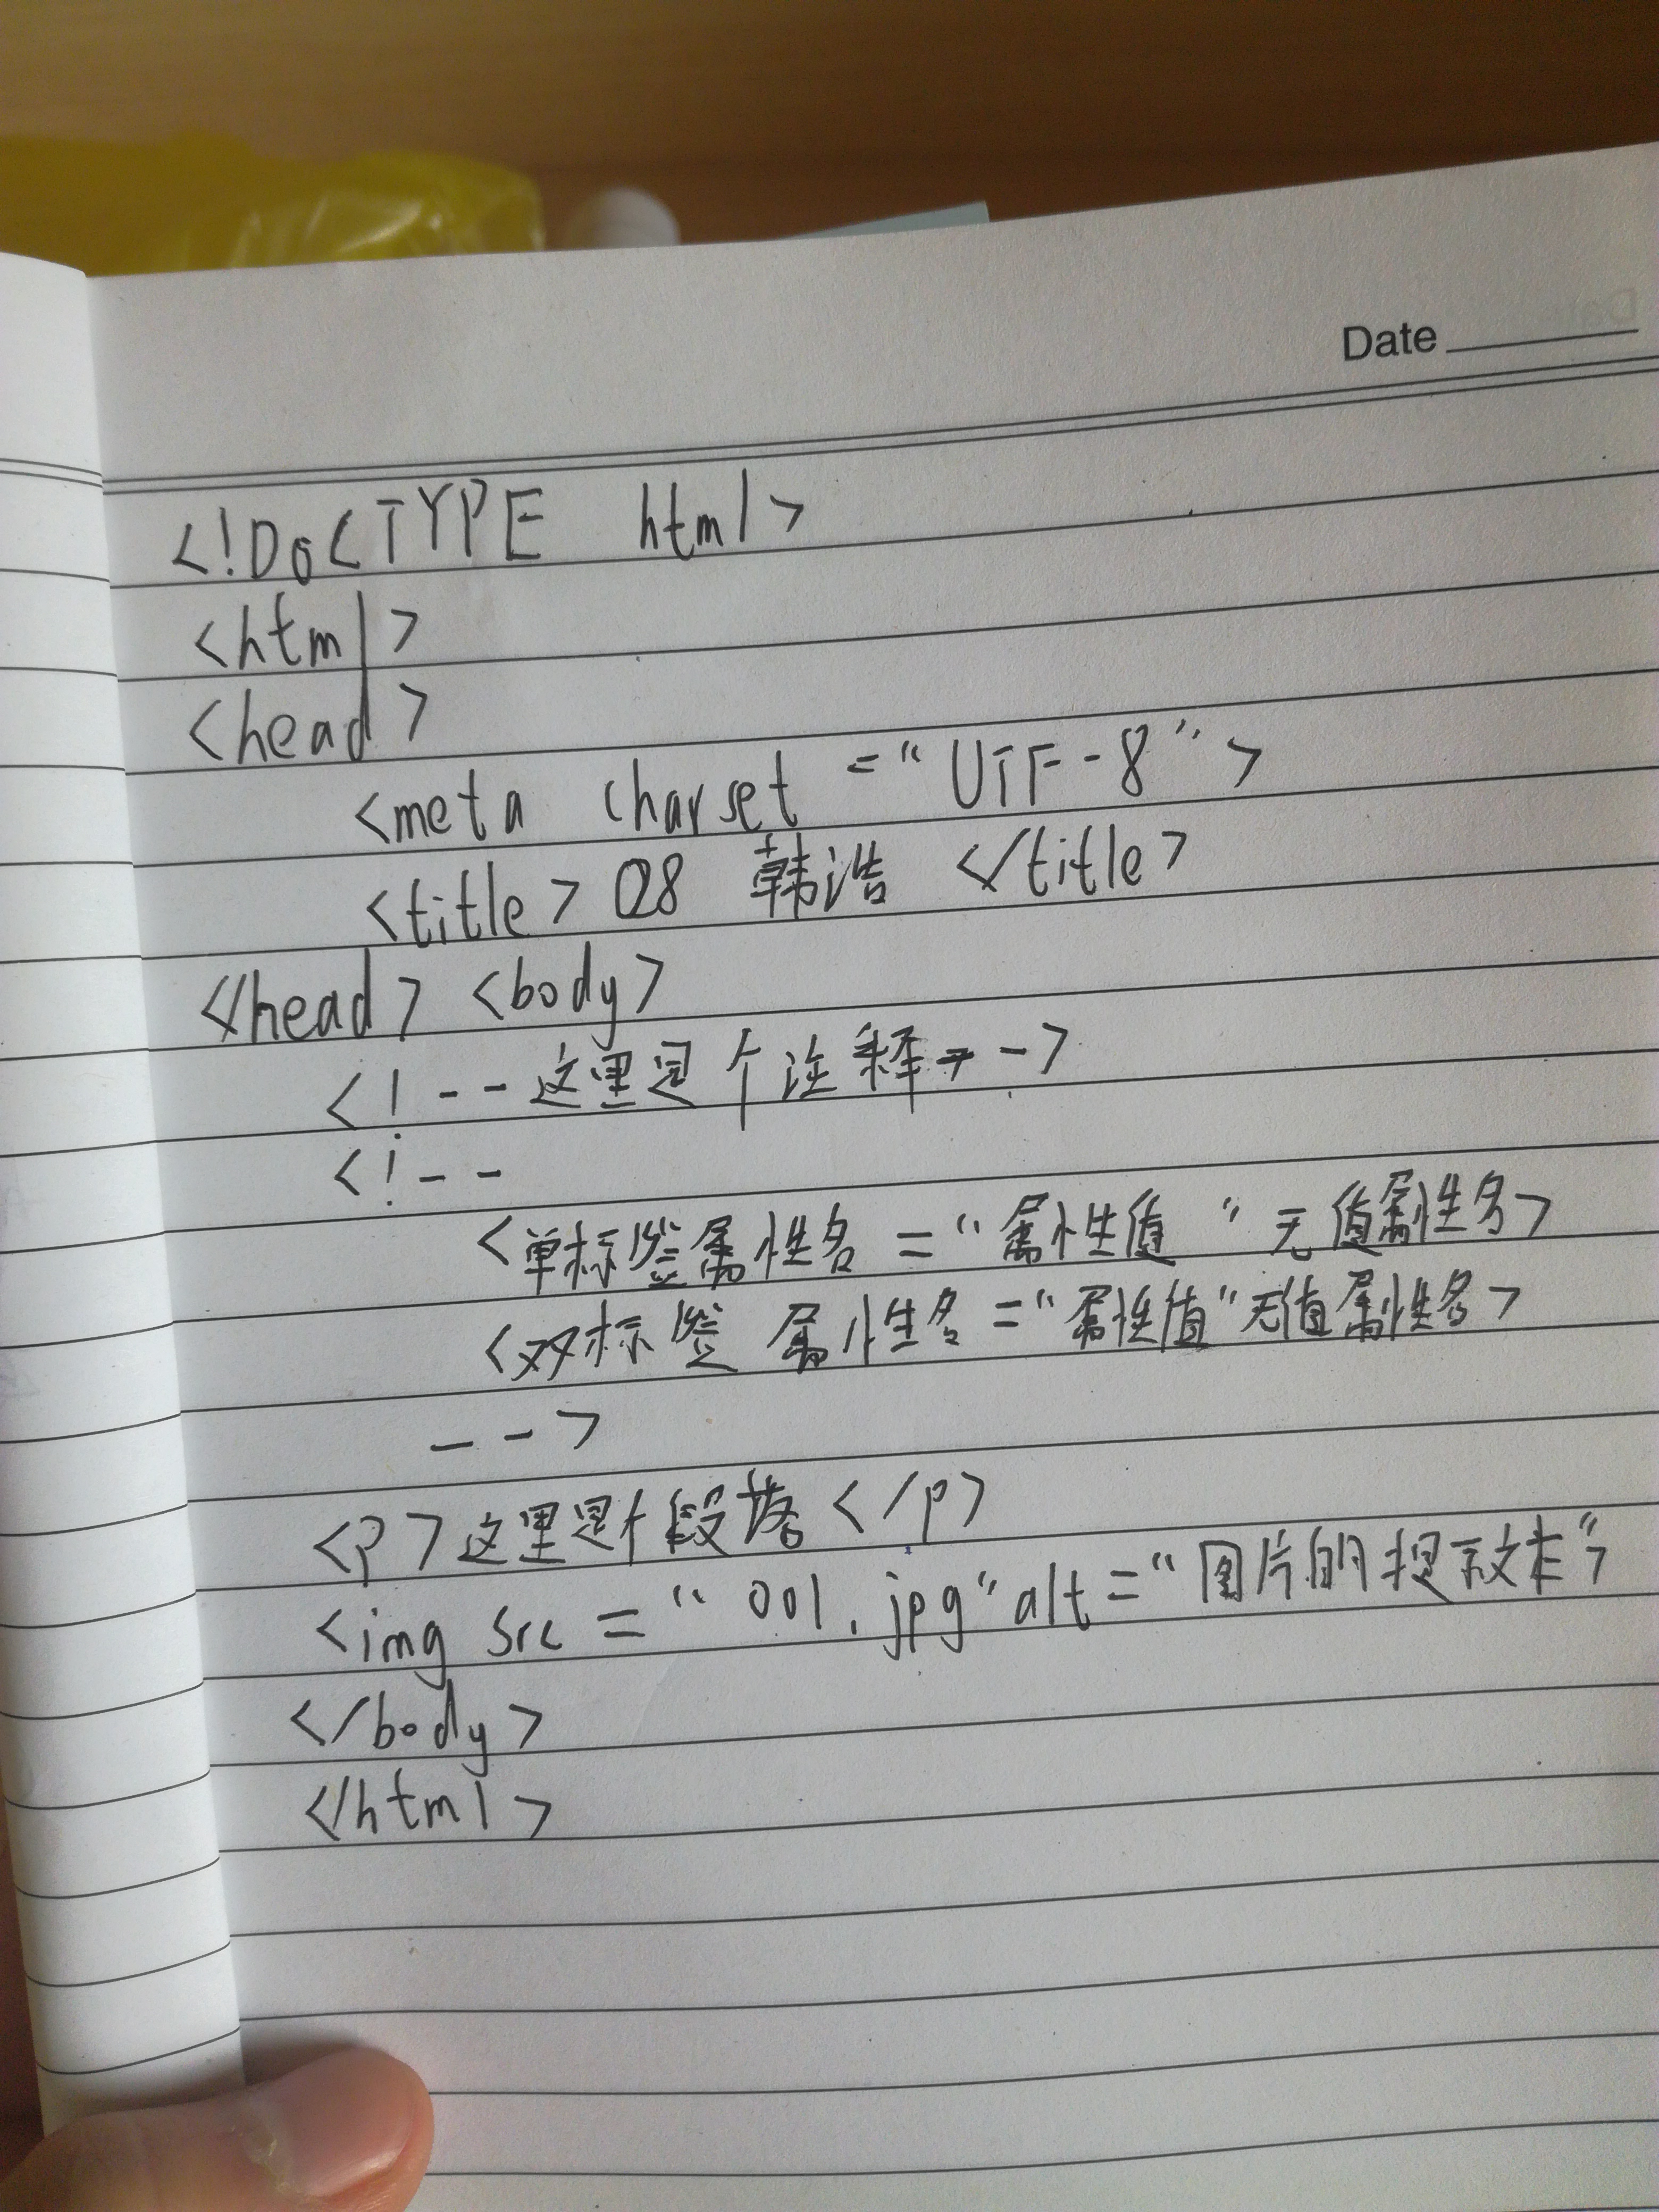 Date
<!DoCTYPE html>
<html>
<head>
<meta charset="UTF-8">
<title>08 韩浩 </title>
</head> <body>
<!--这里是个注释-->
<!--
<单标签属性名="属性值" 无值属性名>
<双标签 属性名="属性值"无值属性名>
-->
<p>这里是个段落</p>
<img src="001.jpg"alt="图片的提示文本">
</body>
</html>